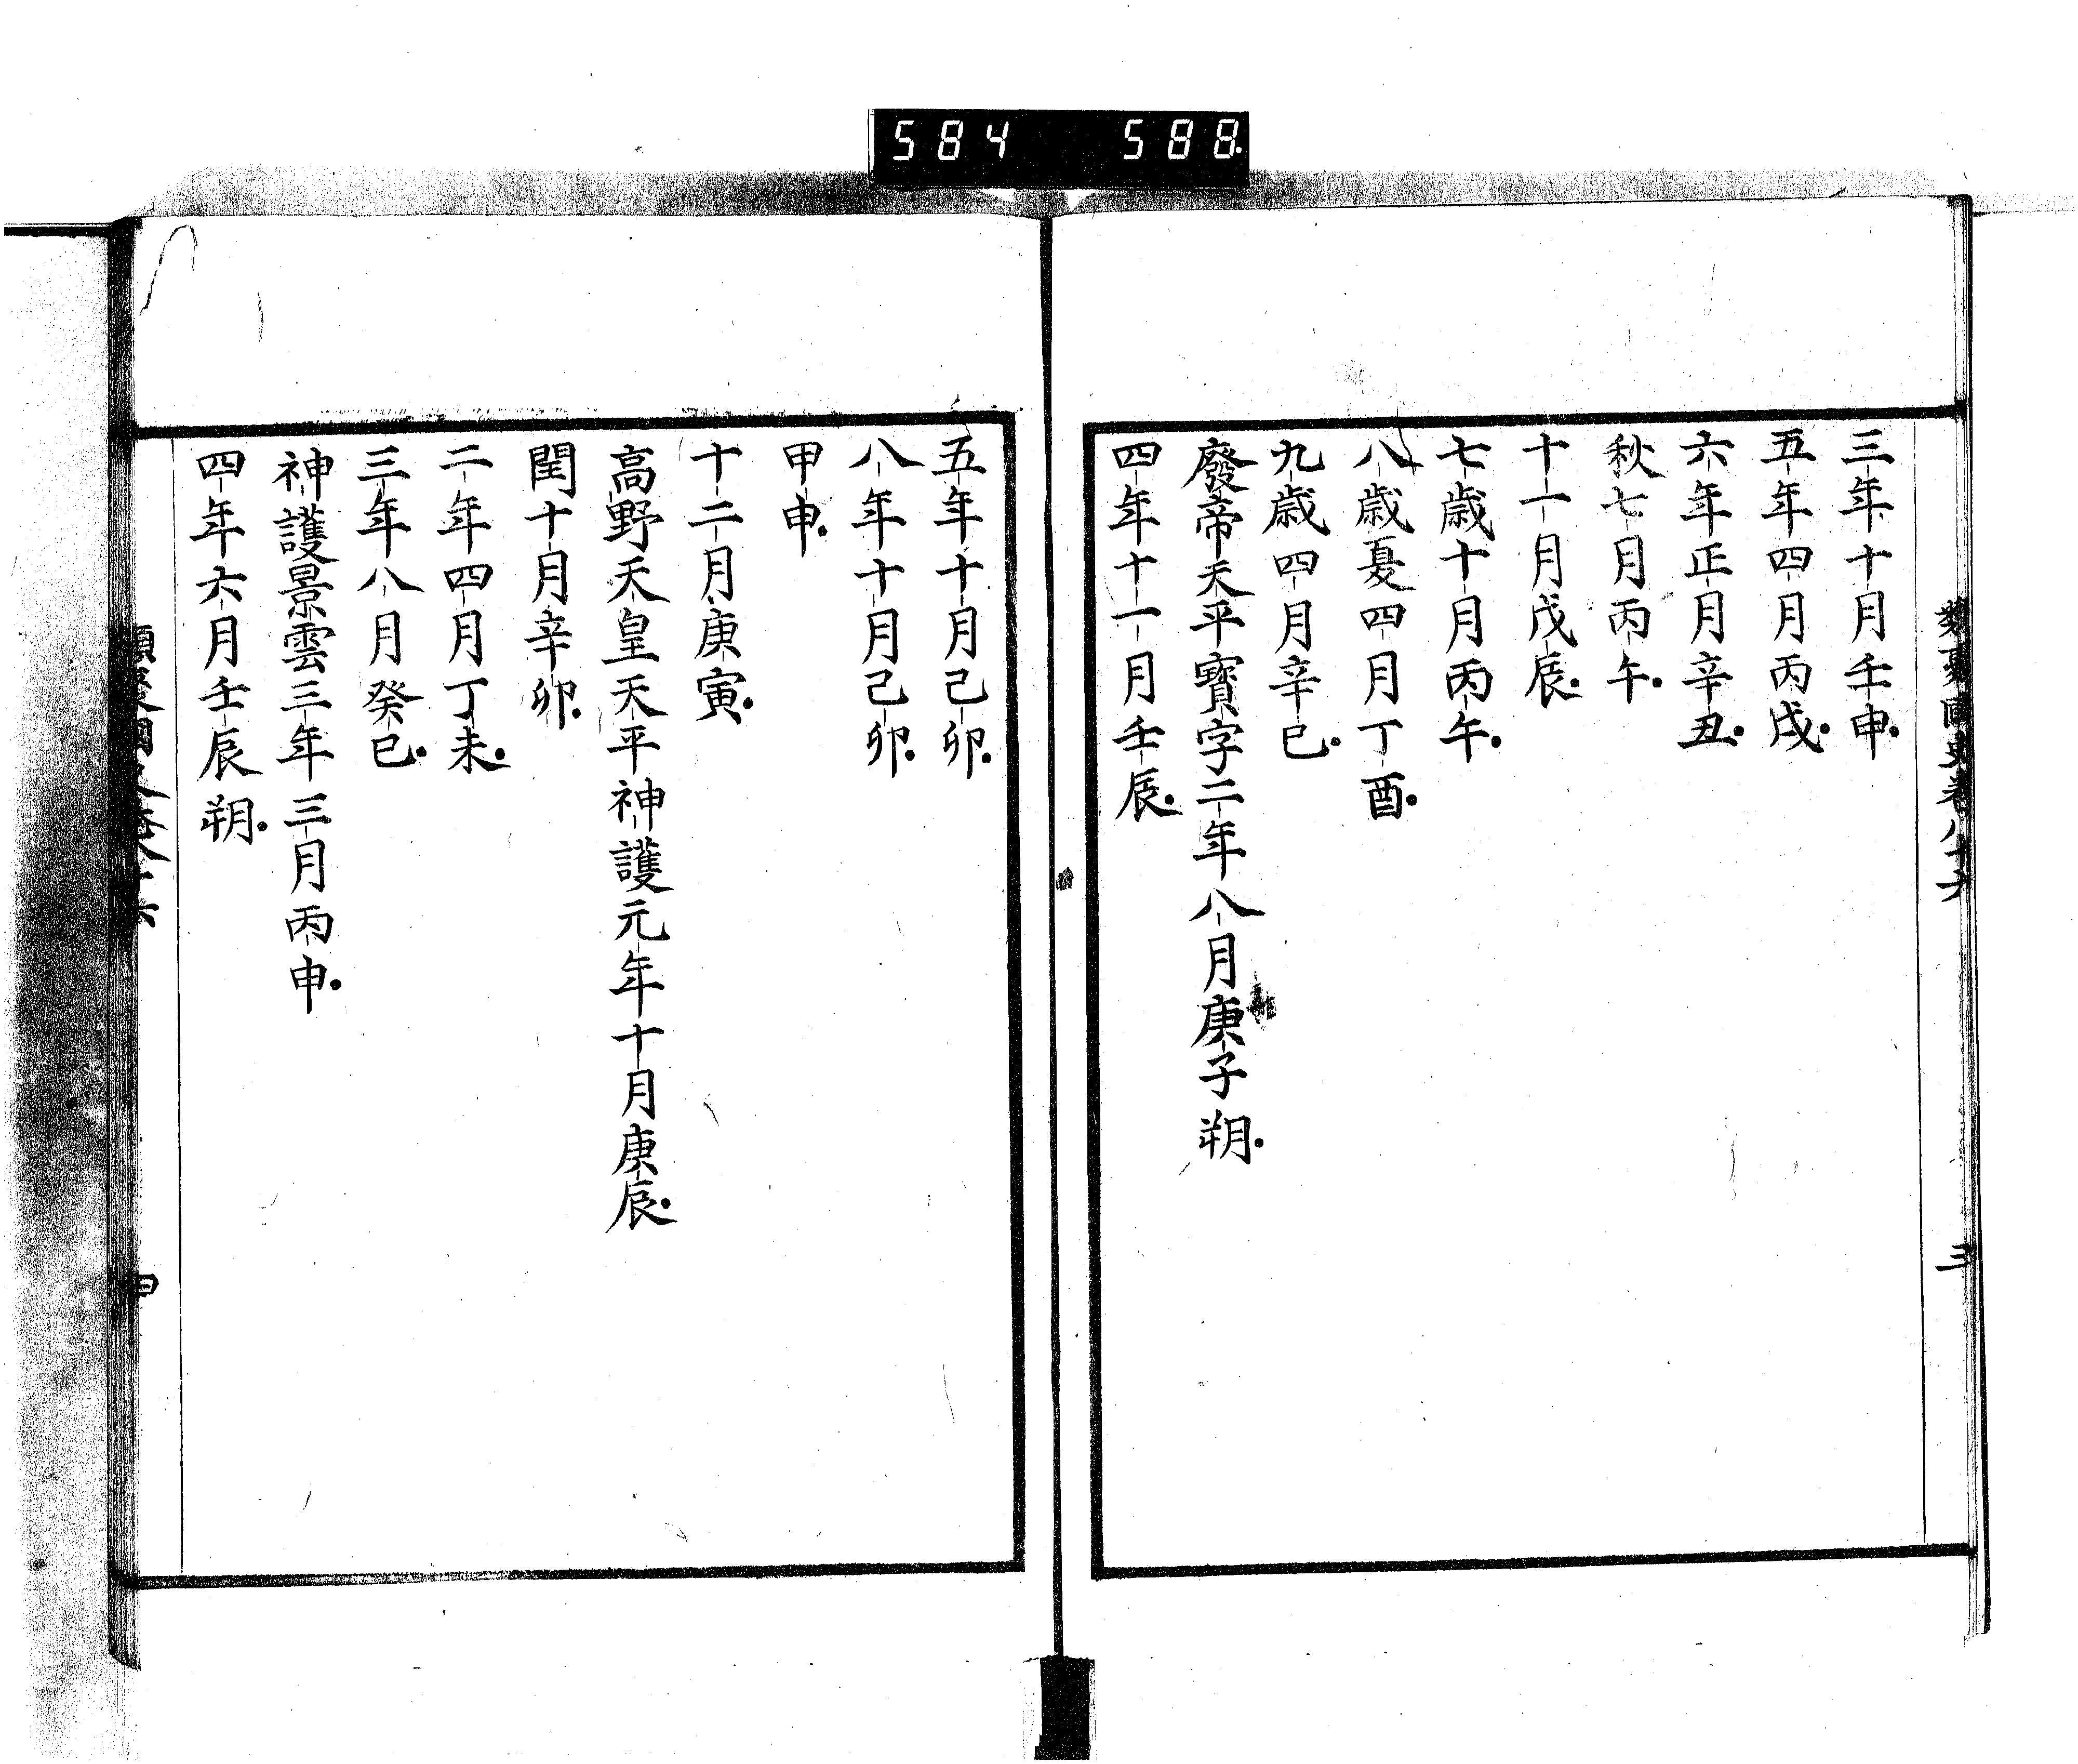 584 588
類聚國史卷八十六 三
三年十月壬申
五年四月丙戌
六年正月辛丑
秋七月丙午
十一月戊辰
七歳十月丙午
八歳夏四月丁酉
九歳四月辛巳
廢帝天平寶字二年八月庚子朔
四年十一月壬辰
五年十月己卯
八年十月己卯
甲申
十二月庚寅
高野天皇天平神護元年十月庚辰
閏十月辛卯
二年四月丁未
三年八月癸巳
神護景雲三年三月丙申
四年六月壬辰朔
類聚國史卷八十六 四